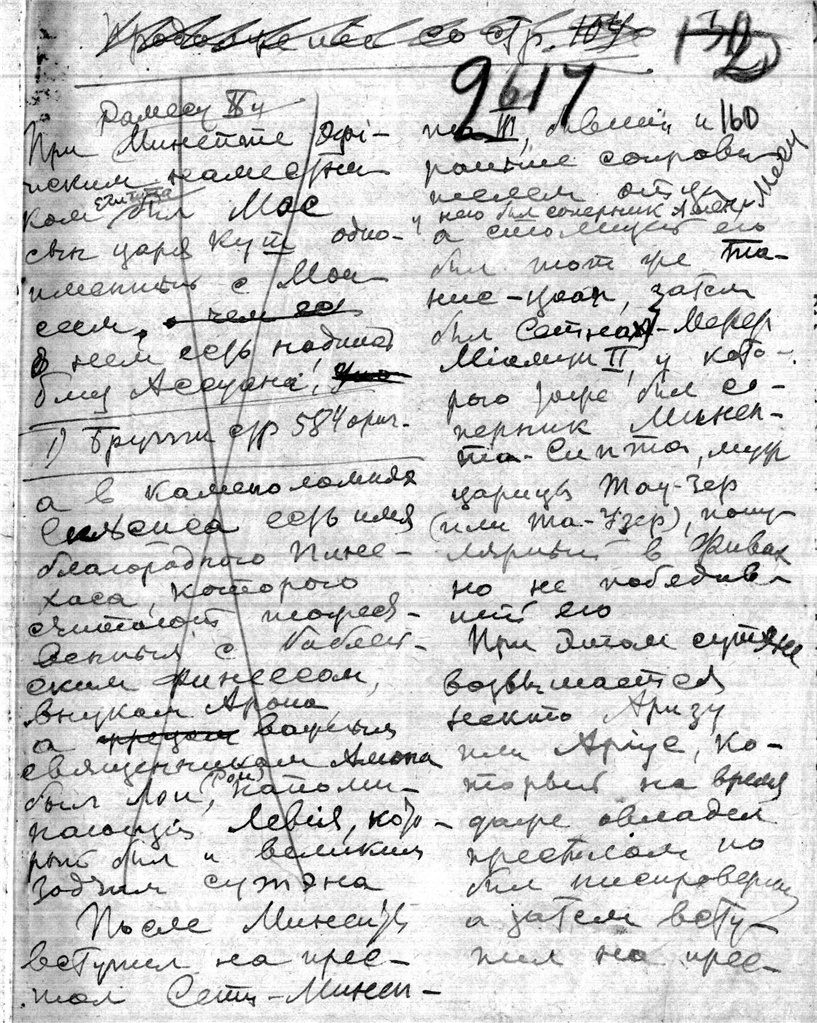 Продолжение со стр. 104
9617
Рамесу II у
При Минепте Эфі-
пским наместни
ком египта был Мос
сын царя Куш одно-
именный с Мои
сеем, о чем ес
о нем есть надпись
близ Ассуана!
1) Бругш стр 584 ориг.
а в каменоломнях
есть имя
благородного Пине-
хаса, которого
считают тождес
венным с библей-
ским Финеесом,
внуком Арона,
а важным
священником Амона
был Лои, (Рои) напоми-
нающій Левія, кото-
рый был и великим
зодчим сутэна
После Минепты
вступил на прес-
тол Сети-Минеп-
та III, бывший и 160
раньше соправи
телем отца
у него был соперник Аменмесу
а столицей его
был тот же Та-
нис-Цоан, затем
был Сетнахт-Мерер
Міамун II, у кото-
рого тоже был со-
перник Минеп-
та-Сипта, муж
царицы Тау-Зер
(или Та-Узер), попу-
лярный в Фивах
но не победив-
ший его
При этом сутэне
возвышается
некто Аризу
или Аріус, ко-
торый на время
даже овладел
престолом но
был ниспровергнут
а затем всту-
пил на прес-